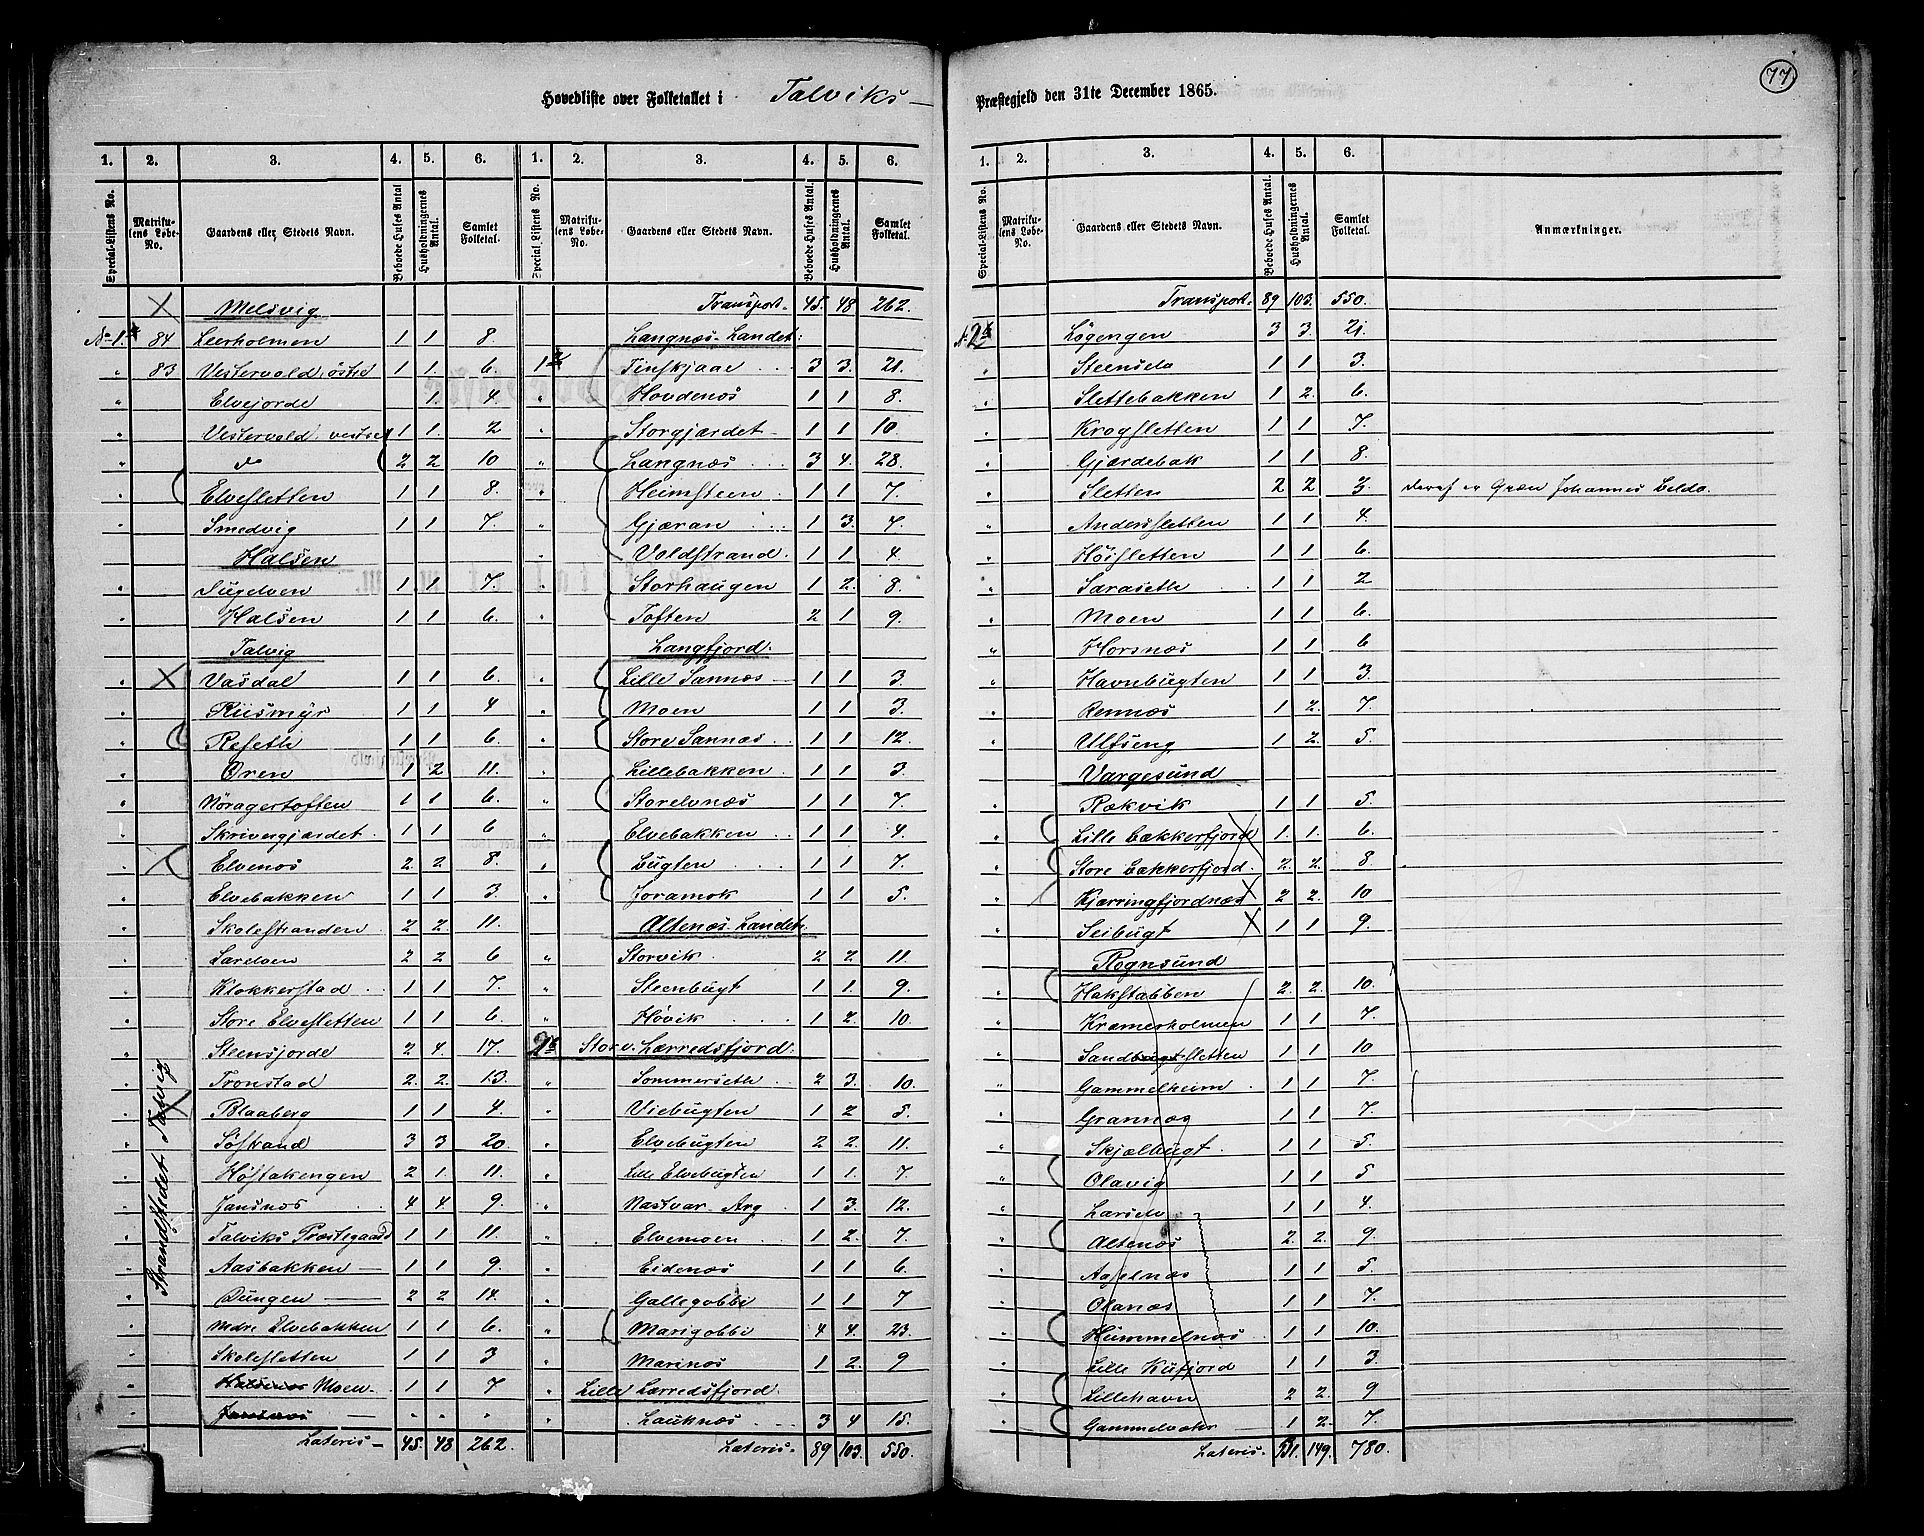 77
Hovedliste over Folketallet i Talviks – Præstegjeld den 31te December 1865.
1. 2. 3. 4. 5. 6. 1. 2. 3. 4. 5. 6.
Special-Listens No. Matrikulens Løbe-No. Gaardens eller Stedets Navn. Beboede Huses Antal Husholdningernes Antal. Samlet Folketal. Special-Listens No. Matrikulens Løbe-No. Gaardens eller Stedets Navn. Beboede Huses Antal. Husholdningernes Antal. Samlet Folketal.
Melsvig
No 1 84 Leerholmen 1 1 8.
" 83 Vestervold, östre 1 1. 6.
" Elvejorde 1. 4.
" Vestervold, vestre 1 1. 2
" do 2 2 10
" Elvesletten 1 1 8.
" Smedvig 1 1 7.
Halsen
" 1 1 7.
" Halsen 1 1 6.
Talvig
" Vasdal 1 1 6.
" Riismyr 1 1 4
" Reseth 1 1 6.
" Øren 1 2 11.
" Nöragertoften 1 1 6.
" Skrivergjærdet 1 1 6
" Elvenes 2 2 8
" Elvebakken 1 1 3.
" Skolestranden 2 2 11.
" Lærelven 2 2 6
" Klokkerstad 1 1 7.
" Store Elvesletten 1 1 6.
" Steensjorde 2 4. 17.
" Tronstad 2. 2. 13.
" Blaaberg 1 1 4.
" Söstrand 3 3 20
" Höstakengen 2 1. 11.
" Jansnæs 4 4. 9.
" Talviks Præstegaard 1 1 11.
" Aasbakken – 1 1 9.
" Düngen – 2 2 14.
" Ndre Elvebakken 1 1 6.
" Skolesletten 1 1 3
" Moen 1 1 7
" Jansnæs – " " "
Strandstedet Talvig
Lateris – 45. 48 262.
Transport. 45. 48 262.
Langnæs-Landet:
1 Finskjaae 3 3. 21.
" Hovdenæs 1 1 8.
" Storgjærdet 1 1 10.
" Langnæs 3 4. 28.
" Heimsteen 1 1 7.
" Gjæran 1 3. 7.
" Voldstrand 1 1 4.
" Storhaugen 1 2. 8.
" Toften 2 1 9.
Langfjord.
" Lille Sannæs 1 1 3.
" Moen 1 1 3.
" Store Sannæs 1 1 12.
" Lillebakken 1 1 3.
" Storelvnæs 1 1 7.
" Elvebakken 1 1 4.
" Bugten 1 1 7.
" Joramok 1 1 5.
Altenæs-Landet.
" Storvik 2 2 11.
" Steenbügt 1 1. 9.
" Hövik 1 2. 10.
2 Store Lærredsfjord.
" Sommerseth 2 3. 10.
" Viebügten 1 2 5.
" Elvebügten 2 2. 11.
" Lille Elvebugten 1 1. 7.
" Nastvar Arg 1 3. 12.
" Elvemoen 1 2. 7
" Eidenæs 1 1 6.
" Gallegobbi 1 1 7
" Marigobbi 4 4. 23.
" Marinæs 1 2. 9
" Lille Lærredsfjord
" Lauknæs 3 4 15.
Lateris. 89 103. 550.
1. 2. 3. 4. 5. 6.
Special-Listens No. Matrikulens Løbe-No. Gaardens eller Stedets Navn. Beboede Huses Antal. Husholdningernes Antal. Samlet Folketal. Anmærkninger.
Transport. 89 103. 550.
No 2 Lögengen 3 3. 21.
" Steenselv 1 1 3.
" Slettebakken 1 2. 6.
" Krogsletten 1 1 7.
" Gjærdebak 1 1 8.
" Sletten 2 2 3. deraf er Græn Johannes
" Andersletten 1 1 4.
" Höisletten 1 1 6.
" Saraseth 1 1 2
" Moen 1 1 6.
" Horsnæs 1 1 6
" Havnbügten 1 1 3.
" Rennæs 1 2. 7.
" Ulfseng 1 2. 5.
Vargesund
" Rækvik 1 1 5.
" Lille Bækkerfjord 1. 1. 6.
" Store Bækkerfjord. 2. 2. 8.
" Kjærringfjordnæs 2 2. 10
" Seibügt 1 1 9.
Rognsund
" Hakstabben 2. 2. 10.
" Kræmerholmen 1 1 7.
" Sandbugtsletten 1 1 10
" Gammelheim 1 1 7.
" Grannæs 1 1 7.
" Skjælbügt 1 1 5.
" Olavig 1 1 5
" Larselv 1 1 4.
" Altenæs 2 2. 9
" Apelnæs 1 1 5.
" Olanæs 1 1 7.
" Hümmelnæs 1 1 10.
" Lille Küfjord 1 1 3.
" Lillehavn 2 2. 9
" Gammelvær 1 2. 7.
Lateris. 131. 149. 780.